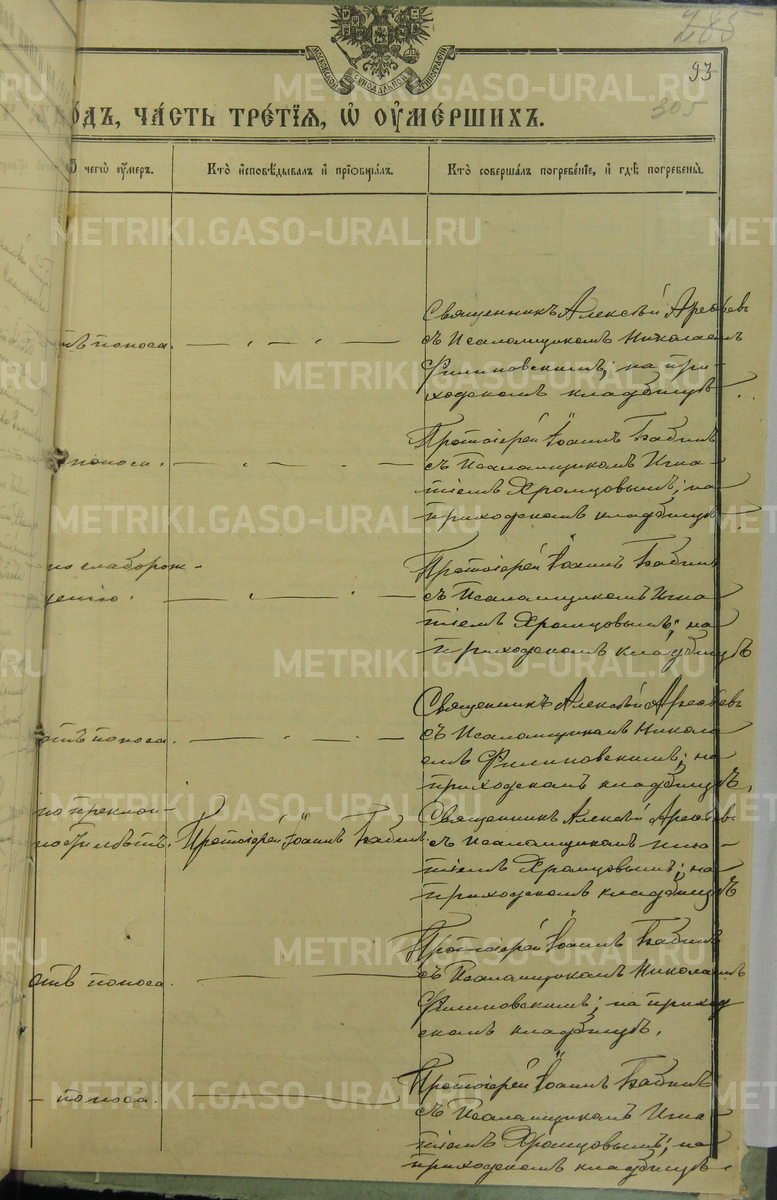 285
93
305
МОСКОВСКОЙ СѴНОДАЛЬНОЙ ТИПОГРАФІИ
го́дъ, ча́сть тре́тїѧ, ѡ҆ ᲂу҆ме́ршихъ.
Ѿ чегѡ̀ ᲂу҆́меръ.
Кто̀ и҆сповѣ́дывалъ и҆ прїѡбща́лъ.
Кто̀ соверша́лъ погребе́нїе, и҆ гдѣ̀ погребены̀.
отъ поноса.
Священникъ Алексѣй Арефьевъ
съ Псаломщикомъ Николаемъ
Филиповскимъ; на при-
ходскомъ кладбищѣ.
поноса.
Протоіерей Іоаннъ Бабинъ
съ Псаломщикомъ Игна-
тіемъ Хромцовымъ; на
приходскомъ кладбищѣ.
по слаборож-
денію.
Протоіерей Іоаннъ Бабинъ
съ Псаломщикомъ Игна
тіемъ Хромцовымъ; на
приходскомъ кладбищѣ
отъ поноса.
Священникъ Алексѣй Арефьевъ
съ Псаломщикомъ Никола
емъ Филиповскимъ; на
приходскомъ кладбищѣ.
по преклон-
ности лѣтъ.
Протоіерей Іоаннъ Бабинъ
Священникъ Алексѣй Арефьевъ
съ Псаломщикомъ Игна-
тіемъ Хромцовымъ; на
приходскомъ кладбищѣ
отъ поноса.
Протоіерей Іоаннъ Бабинъ
съ Псаломщикомъ Николаемъ
Филиповскимъ; на приход
скомъ кладбищѣ.
– поноса.
Протоіерей Іоаннъ Бабинъ
съ Псаломщикомъ Игна
тіемъ Хромцовымъ; на
приходскомъ кладбищѣ.
METRIKI.GASO-URAL.RU